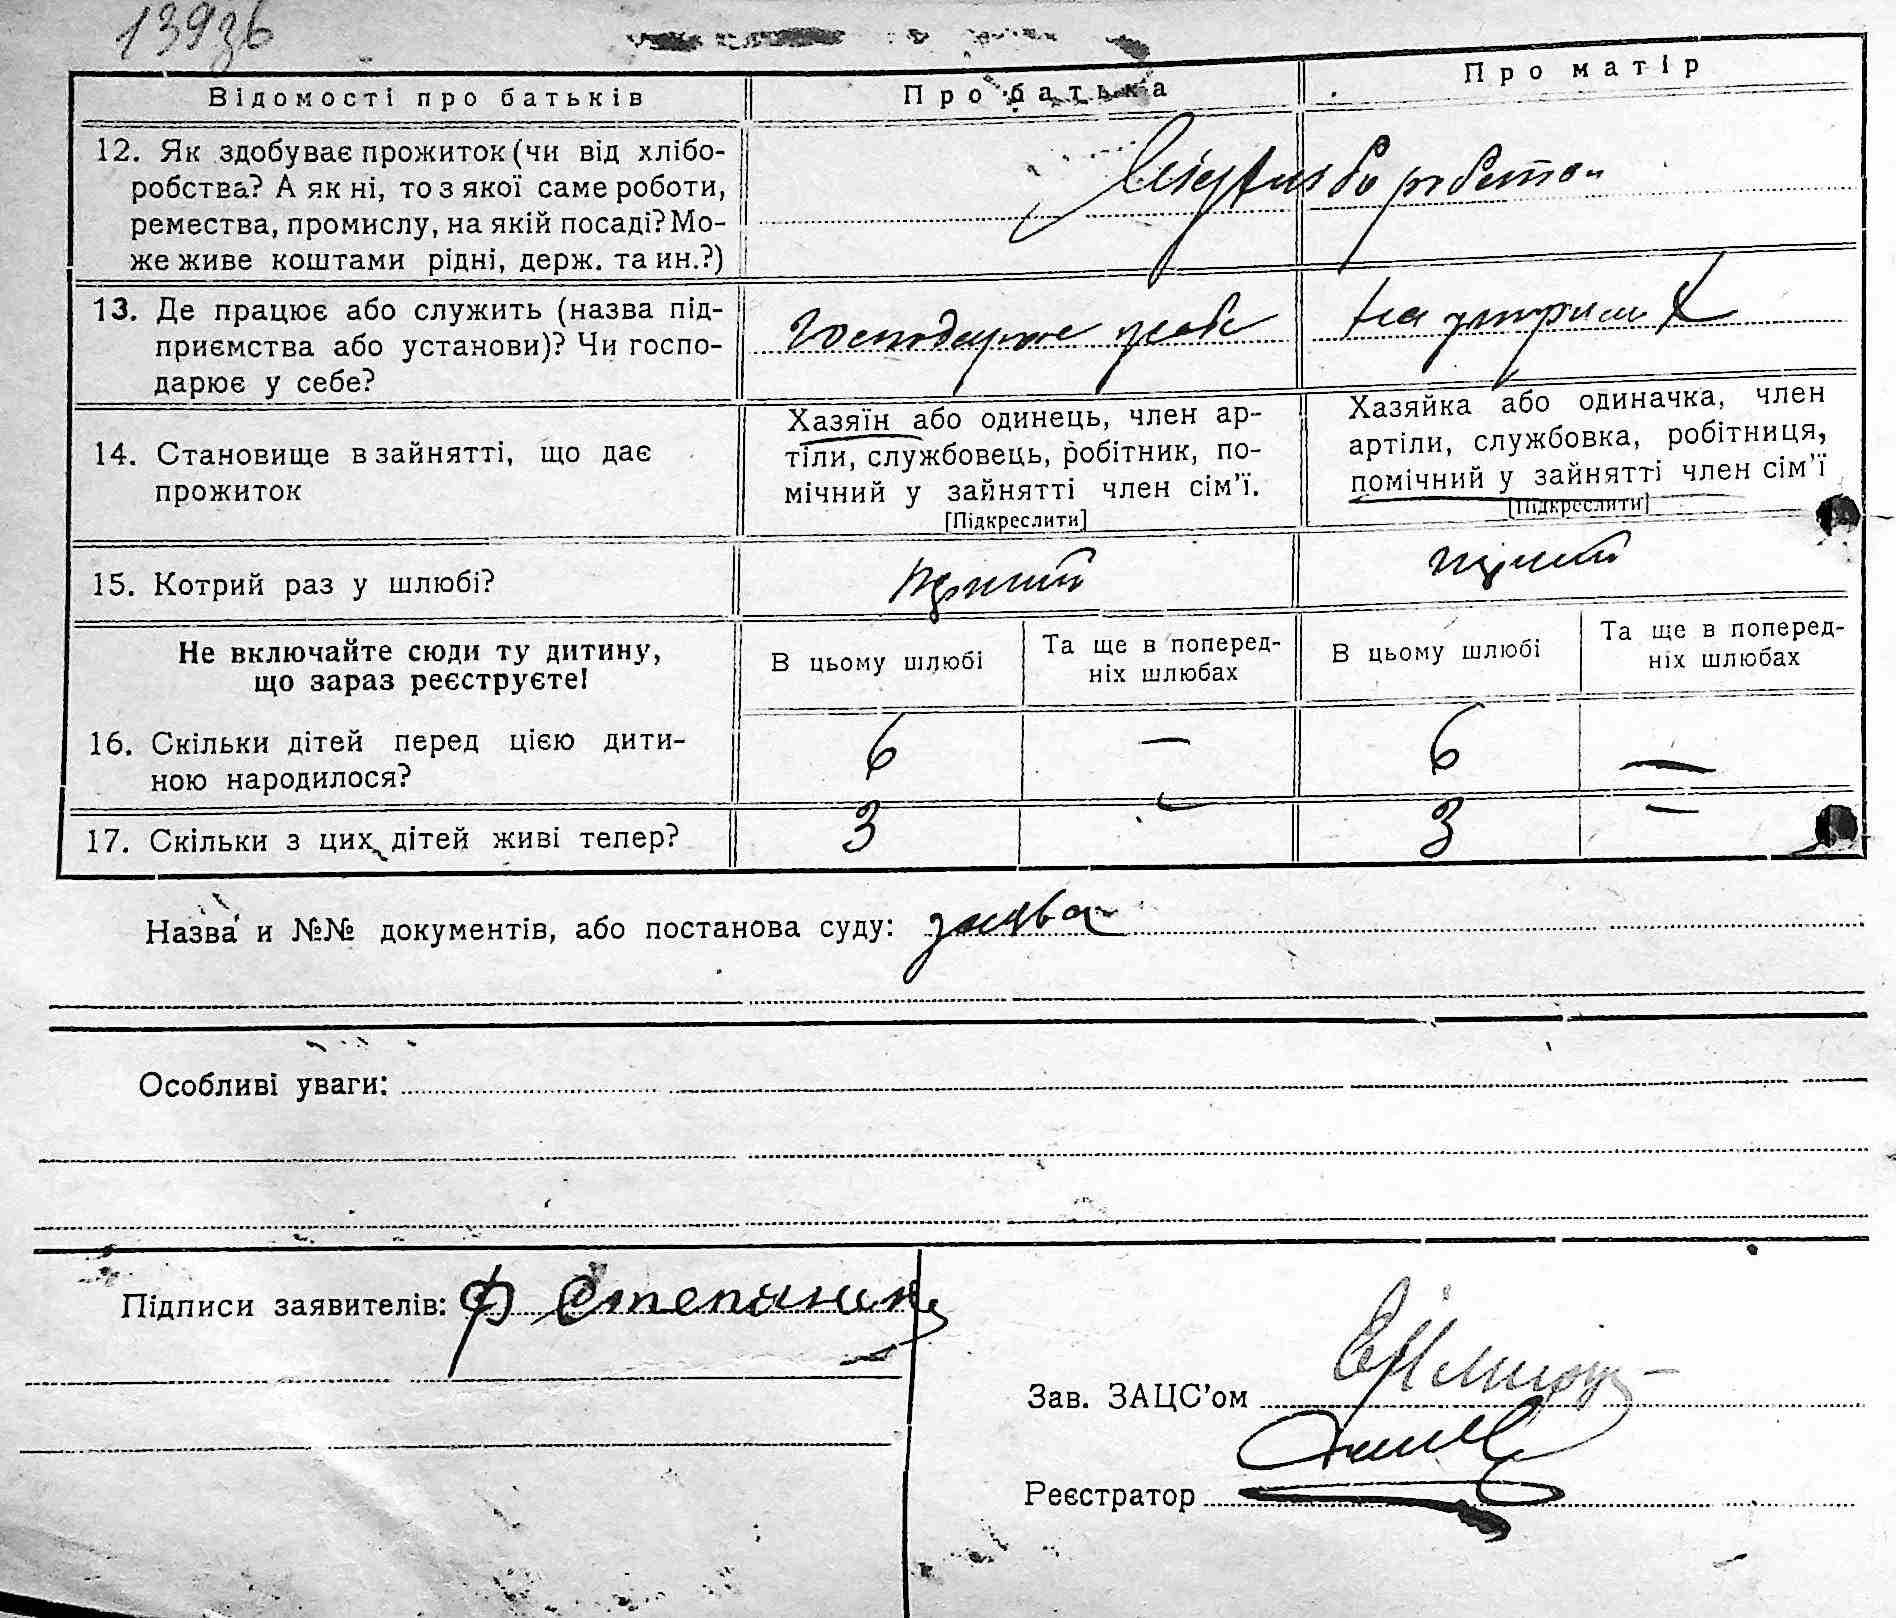 139зв
Відомості про батьків
Про батька
Про матір
12. Як здобуває прожиток (чи від хлібо-
робства? А як ні, то з якої саме роботи,
ремества, промислу, на якій посаді? Мо-
же живе коштами рідні, держ. та ин.?)
13. Де працює або служить (назва під-
приємства або установи)? Чи госпо-
дарює у себе?
Господарює у себе
на утриман
14. Становище в зайнятті, що дає
прожиток
Хазяїн або одинець, член ар-
тіли, службовець, робітник, по-
мічний у зайнятті член сім'ї.
[Підкреслити]
Хазяйка або одиначка, член
артіли, службовка, робітниця,
помічний у зайнятті член сім'ї
[Підкреслити]
15. Котрий раз у шлюбі?
перший
перший
Не включайте сюди ту дитину,
що зараз реєструєте!
В цьому шлюбі
Та ще в поперед-
ніх шлюбах
В цьому шлюбі
Та ще в поперед-
ніх шлюбах
16. Скільки дітей перед цією дити-
ною народилося?
6
—
6
—
17. Скільки з цих дітей живі тепер?
3
—
3
—
Назва и №№ документів, або постанова суду: заява
Особливі уваги:
Підписи заявителів: Ф Степанен
Зав. ЗАЦС'ом
Реєстратор